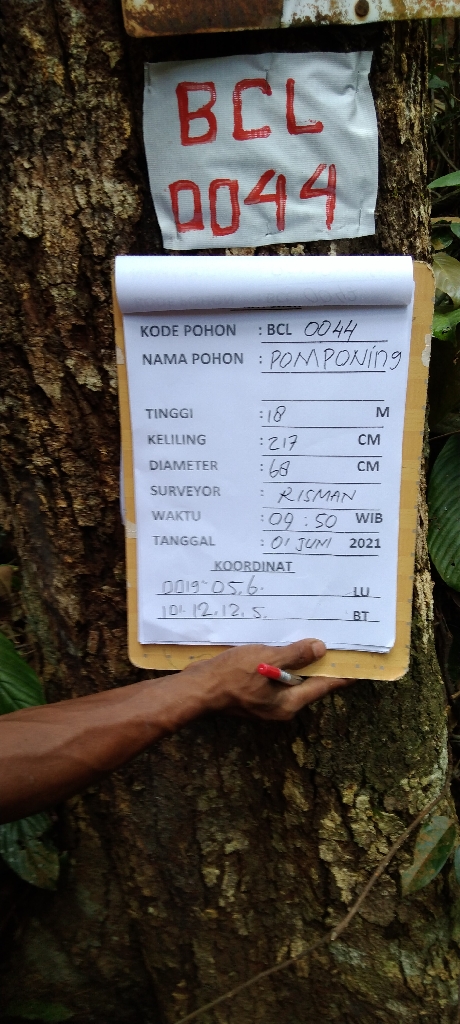 BCL
0044
KODE POHON : BCL 0044
NAMA POHON : POMPONING
TINGGI : 18 M
KELILING : 217 CM
DIAMETER : 68 CM
SURVEYOR : RISMAN
WAKTU : 09 : 50 WIB
TANGGAL : 01 JUNI 2021
KOORDINAT
0019 05.6. LU
101. 12.12.5. BT